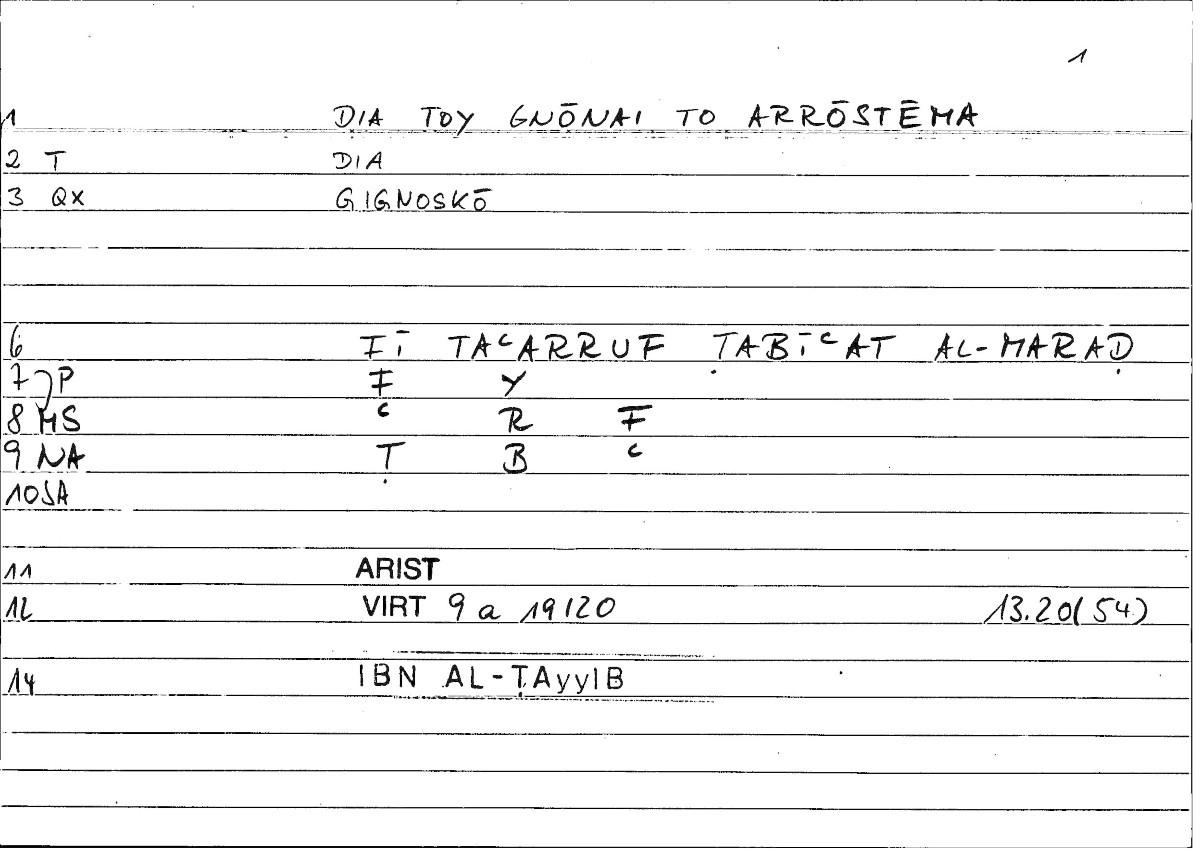 1
1 DIA TOY GNŌNAI TO ARRŌSTĒMA
2 T DIA
3 QX GIGNOSKŌ
6 FĪ TAᶜARRUF ṬABĪᶜAT AL-MARAḌ
7 P F Y
8 MS ᶜ R F
9 NA Ṭ B ᶜ
10 SA
11 ARIST
12 VIRT 9 a 19/20 13.20(54)
14 IBN AL-ṬAyyIB